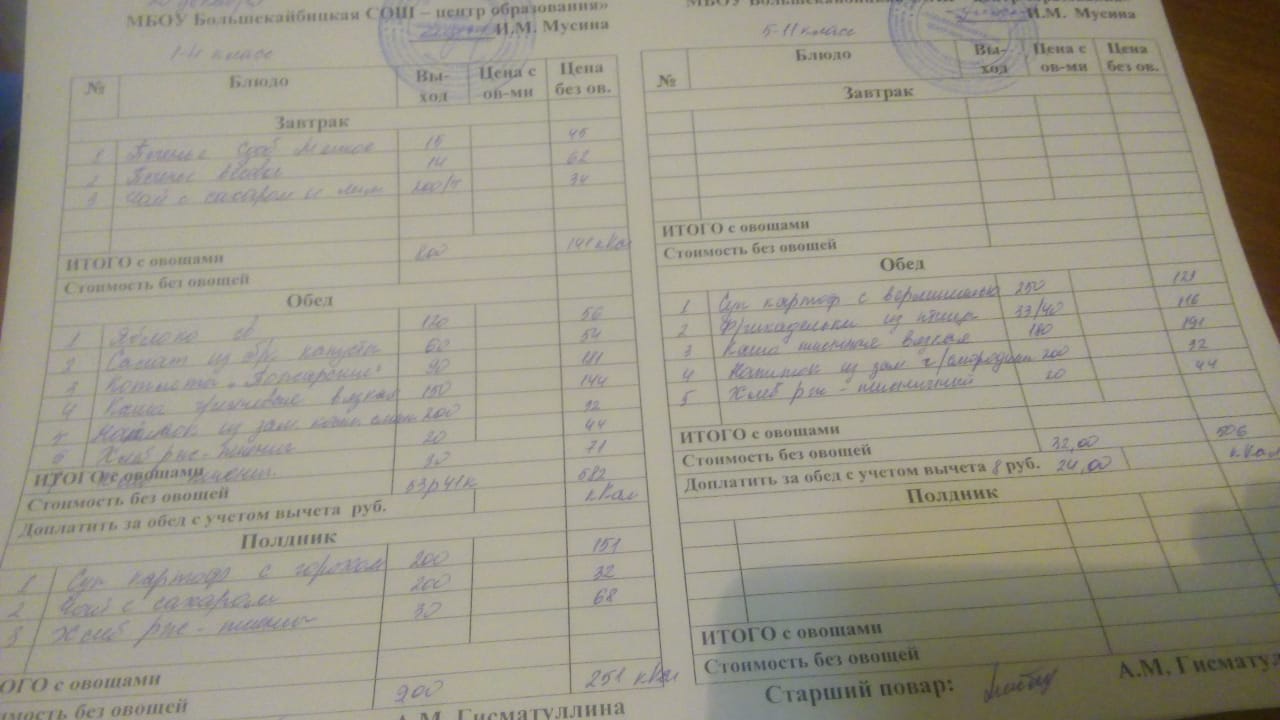 МБОУ Большекайбицкая СОШ – центр образования»
И.М. Мусина
1-4 класс
№ Блюдо Вы-ход Цена с ов-ми Цена без ов.
Завтрак
1 Печенье 15 45
2 Печенье 14 62
3 Чай с сахаром и лим 200/7 34
ИТОГО с овощами 141 кКал
Стоимость без овощей
Обед
1 Яблоко 120 56
2 Салат из капусты 60 54
3 Котлета 90
4 Каша вязкая 150 144
5 Напиток из зам. 200 92
6 Хлеб рж-пшенич 20 44
7 пшенич. 30 71
ИТОГО с овощами 582
Стоимость без овощей 63р41к кКал
Доплатить за обед с учетом вычета руб.
Полдник
1 Суп картоф с горохом 200 151
2 Чай с сахаром 200 32
3 Хлеб рж-пшенич 30 68
ОГО с овощами 251 кКал
мость без овощей
А.М. Гисматуллина
И.М. Мусина
5-11 класс
№ Блюдо Вы-ход Цена с ов-ми Цена без ов.
Завтрак
ИТОГО с овощами
Стоимость без овощей
Обед
1 Суп картоф с вермишелью 250 121
2 Фрикадельки из птицы 116
3 Каша пшенная вязкая 180 191
4 Напиток из зам ч/смородин 200 92
5 Хлеб рж-пшеничный 20 44
ИТОГО с овощами
Стоимость без овощей 32,00 506
Доплатить за обед с учетом вычета 8 руб. 24,00 кКал
Полдник
ИТОГО с овощами
Стоимость без овощей
Старший повар: А.М. Гисматул